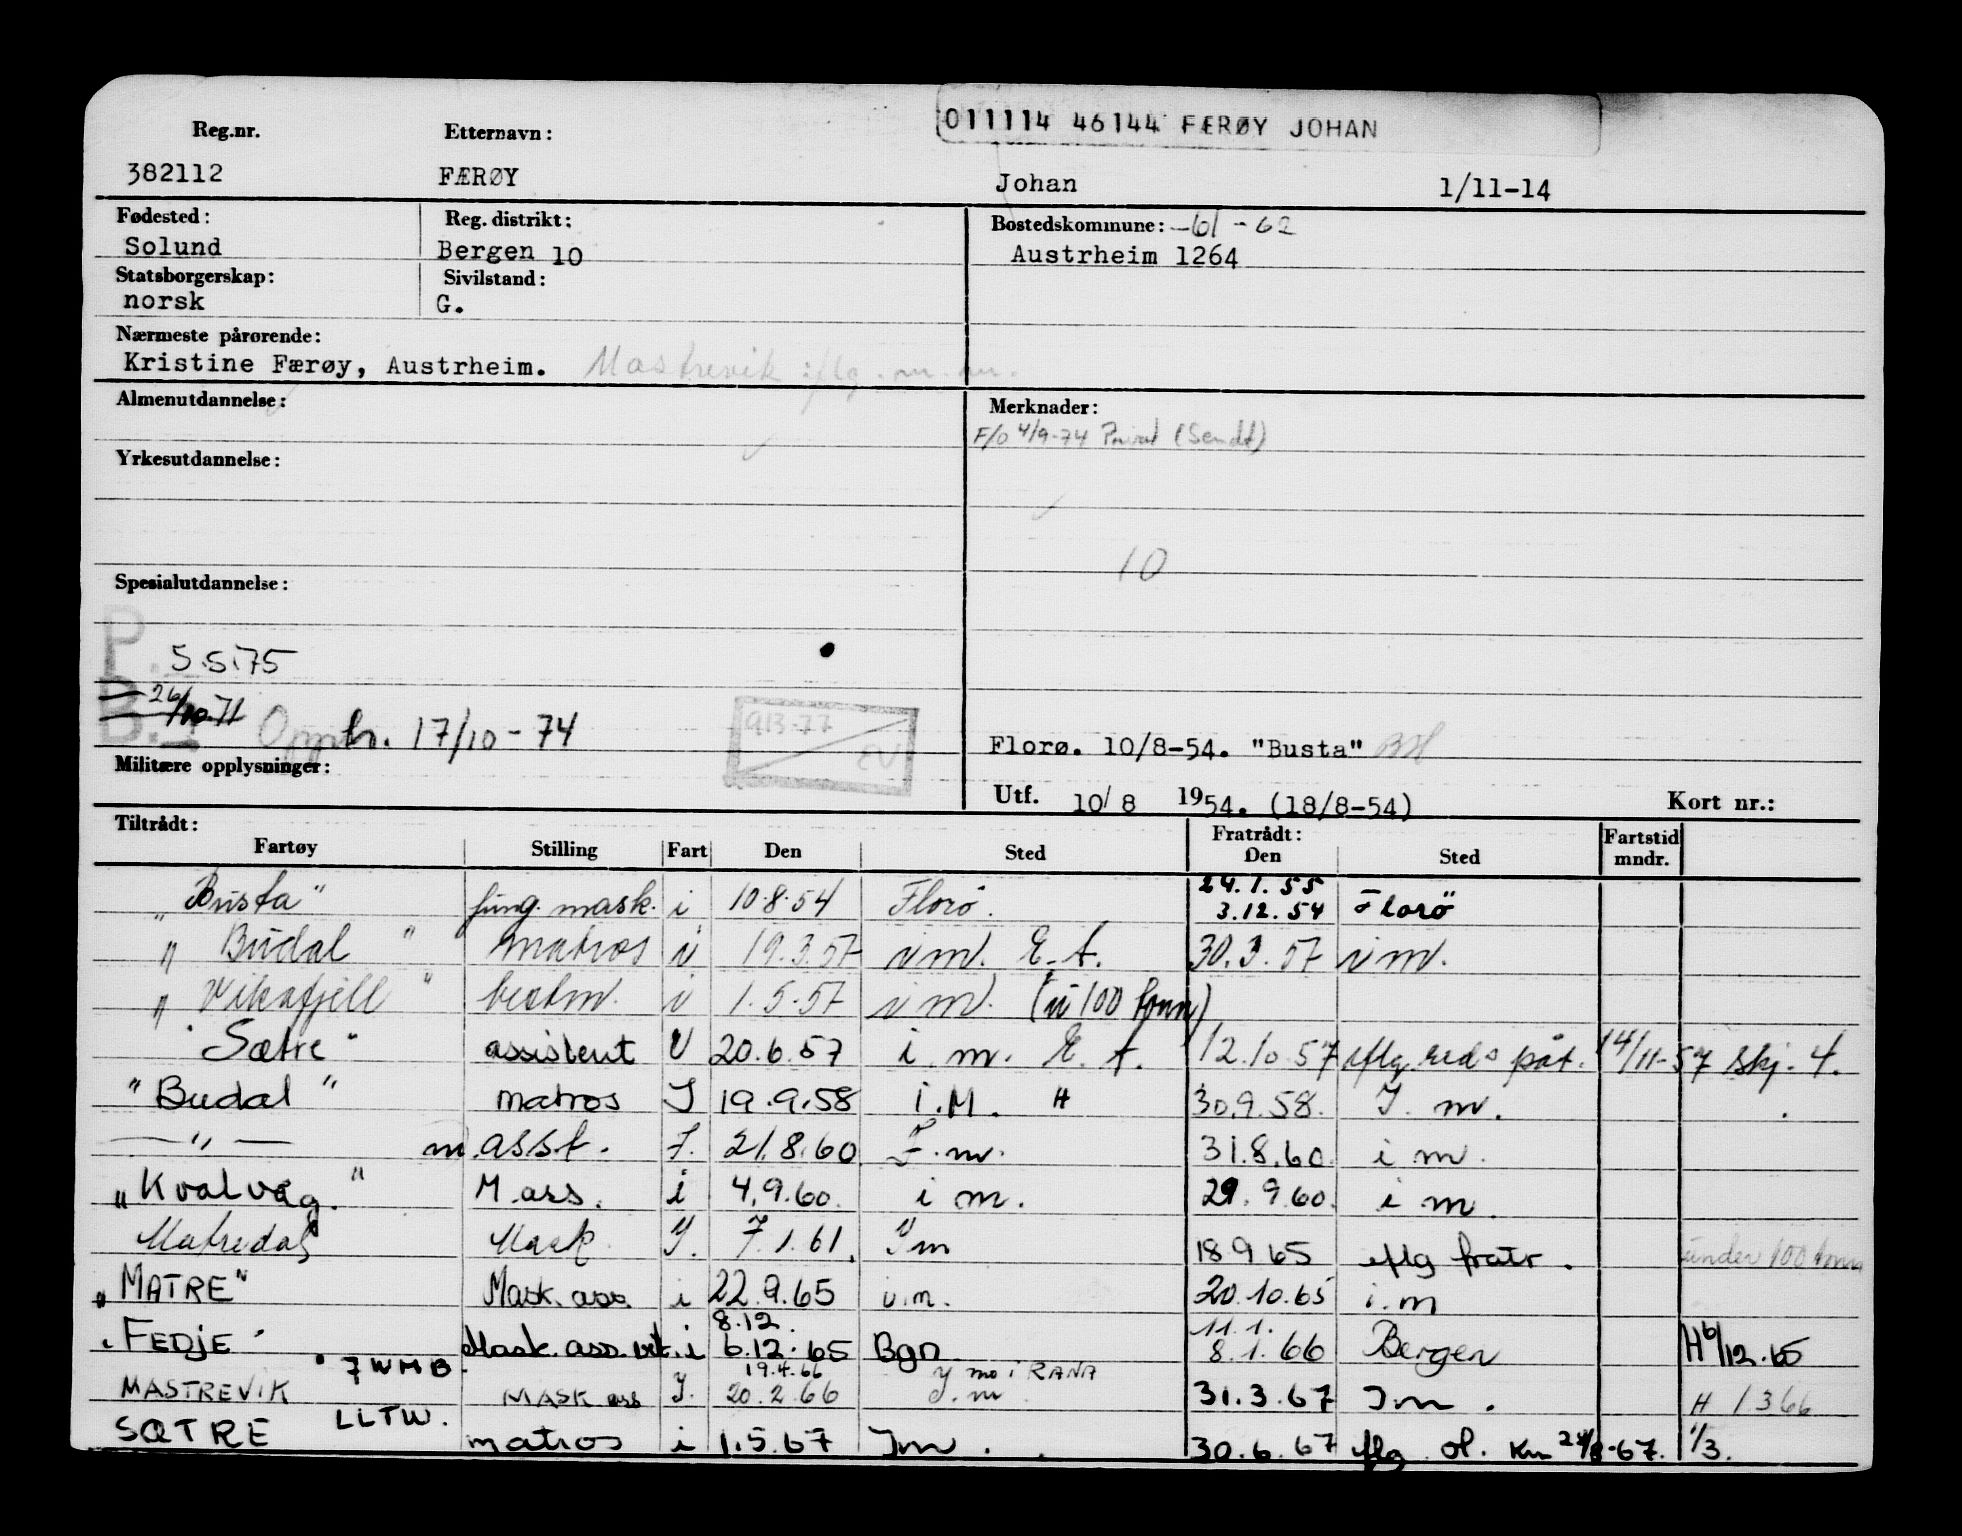 011114 46144 FÆRØY JOHAN
Reg.nr. Etternavn:
382112 FÆRØY Johan 1/11-14
Fødested: Reg. distrikt: Bostedskommune: -61 - 62
Solund Bergen 10 Austrheim 1264
Statsborgerskap: Sivilstand:
norsk G.
Nærmeste pårørende:
Kristine Færøy, Austrheim. Mastrevik iflg. m.m.
Almenutdannelse: Merknader:
F/o 4/9-74 Privat (Sendt)
Yrkesutdannelse:
10
Spesialutdannelse:
P. 5.5.75
B. 26/10-71 Opph. 17/10-74
913-77
EU
Florø. 10/8-54. "Busta"
Militære opplysninger:
Utf. 10/8 1954. (18/8-54) Kort nr.:
Tiltrådt: Fratrådt: Fartstid
Fartøy Stilling Fart Den Sted Den Sted mndr.
24.1.55
"Busta" fung. mask. i 10.8.54 Florø. 3.12.54 Florö
"Budal" matros i 19.3.57 i m. E.A. 30.3.57 i m.
"Vikafjell" bestm. i 1.5.57 i m. (u 100 tonn)
"Sætre" assistent U 20.6.57 i m. E.A. 12.10.57 iflg red's påt. 14/11-57 Skj. 4.
"Budal" matros I 19.9.58 i.M. H 30.9.58. I. m.
— " — m.asst. I. 21.8.60 I.m. 31.8.60. i m.
"Kvalvåg." M.ass. i 4.9.60. i m. 29.9.60. i m.
Matredal Mask. I. 7.1.61. Im 18.9.65 iflg fratr. under 100 tonn
"MATRE" Mask. ass. i 22.9.65 i.m. 20.10.65 i.m
8.12. 11.1.
"FEDJE" Mask. ass. vik. i 6.12.65 Bgn 8.1.66 Bergen H 6/12.65
JWMB. 19.4.66 mo i RANA
MASTREVIK MASK ass I. 20.2.66 I.m 31.3.67 Im. H 1366
LLTW.
SÆTRE matros i 1.5.67 Im. 30.6.67 iflg. ol. 1/3.